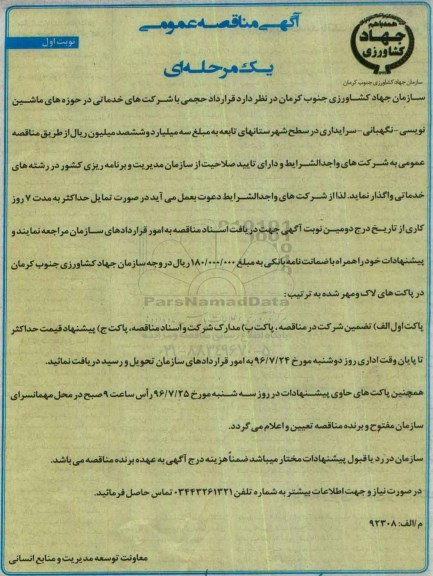 آگهی مناقصه عمومی
یک مرحله‌ای
نوبت اول
جهاد
کشاورزی
سازمان جهاد کشاورزی جنوب کرمان
سازمان جهاد کشاورزی جنوب کرمان در نظر دارد قرارداد حجمی با شرکت های خدماتی در حوزه های ماشین
نویسی - نگهبانی - سرایداری در سطح شهرستانهای تابعه به مبلغ سه میلیارد و ششصد میلیون ریال از طریق مناقصه
عمومی به شرکت های واجدالشرایط و دارای تایید صلاحیت از سازمان مدیریت و برنامه ریزی کشور در رشته های
خدماتی واگذار نماید. لذا از شرکت های واجدالشرایط دعوت بعمل می آید در صورت تمایل حداکثر به مدت ۷ روز
کاری از تاریخ درج دومین نوبت آگهی جهت دریافت اسناد مناقصه به امور قراردادهای سازمان مراجعه نمایند و
پیشنهادات خود را همراه با ضمانت نامه بانکی به مبلغ ۱۸۰/۰۰۰/۰۰۰ ریال در وجه سازمان جهاد کشاورزی جنوب کرمان
در پاکت های لاک و مهر شده به ترتیب:
ParsNamadData
پاکت اول الف) تضمین شرکت در مناقصه، پاکت ب) مدارک شرکت و اسناد مناقصه، پاکت ج) پیشنهاد قیمت حداکثر
تا پایان وقت اداری روز دوشنبه مورخ ۹۶/۷/۲۴ به امور قراردادهای سازمان تحویل و رسید دریافت نمائید.
همچنین پاکت های حاوی پیشنهادات در روز سه شنبه مورخ ۹۶/۷/۲۵ رأس ساعت ۹ صبح در محل مهمانسرای
سازمان مفتوح و برنده مناقصه تعیین و اعلام می گردد.
سازمان در رد یا قبول پیشنهادات مختار میباشد ضمناً هزینه درج آگهی به عهده برنده مناقصه می باشد.
در صورت نیاز و جهت اطلاعات بیشتر به شماره تلفن ۰۳۴۴۳۲۶۱۳۲۱ تماس حاصل فرمائید.
م/الف: ۹۲۳۰۸
معاونت توسعه مدیریت و منابع انسانی